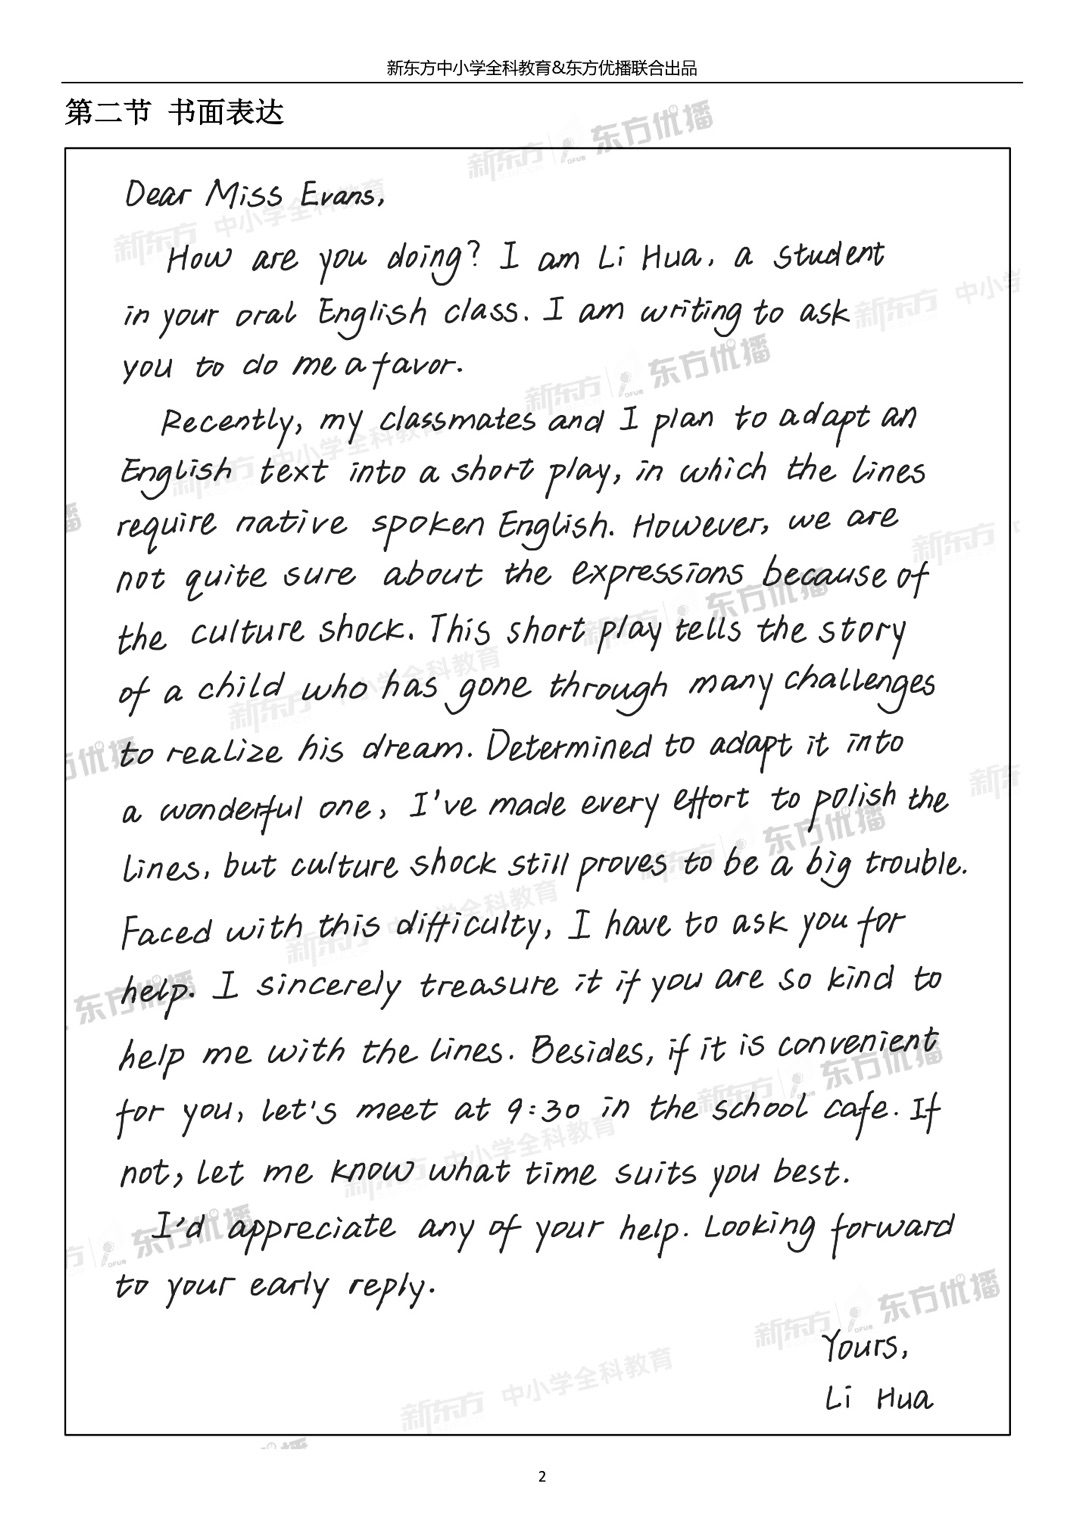 新东方中小学全科教育&东方优播联合出品
第二节 书面表达
Dear Miss Evans,
How are you doing? I am Li Hua, a student
in your oral English class. I am writing to ask
you to do me a favor.
Recently, my classmates and I plan to adapt an
English text into a short play, in which the lines
require native spoken English. However, we are
not quite sure about the expressions because of
the culture shock. This short play tells the story
of a child who has gone through many challenges
to realize his dream. Determined to adapt it into
a wonderful one, I've made every effort to polish the
lines, but culture shock still proves to be a big trouble.
Faced with this difficulty, I have to ask you for
help. I sincerely treasure it if you are so kind to
help me with the lines. Besides, if it is convenient
for you, let's meet at 9:30 in the school cafe. If
not, let me know what time suits you best.
I'd appreciate any of your help. Looking forward
to your early reply.
Yours,
Li Hua
2